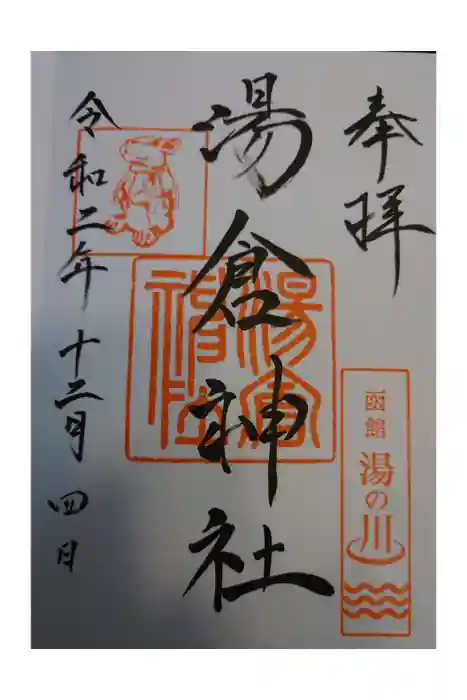 奉拝
函館
湯の川
湯倉神社
令和二年十二月四日